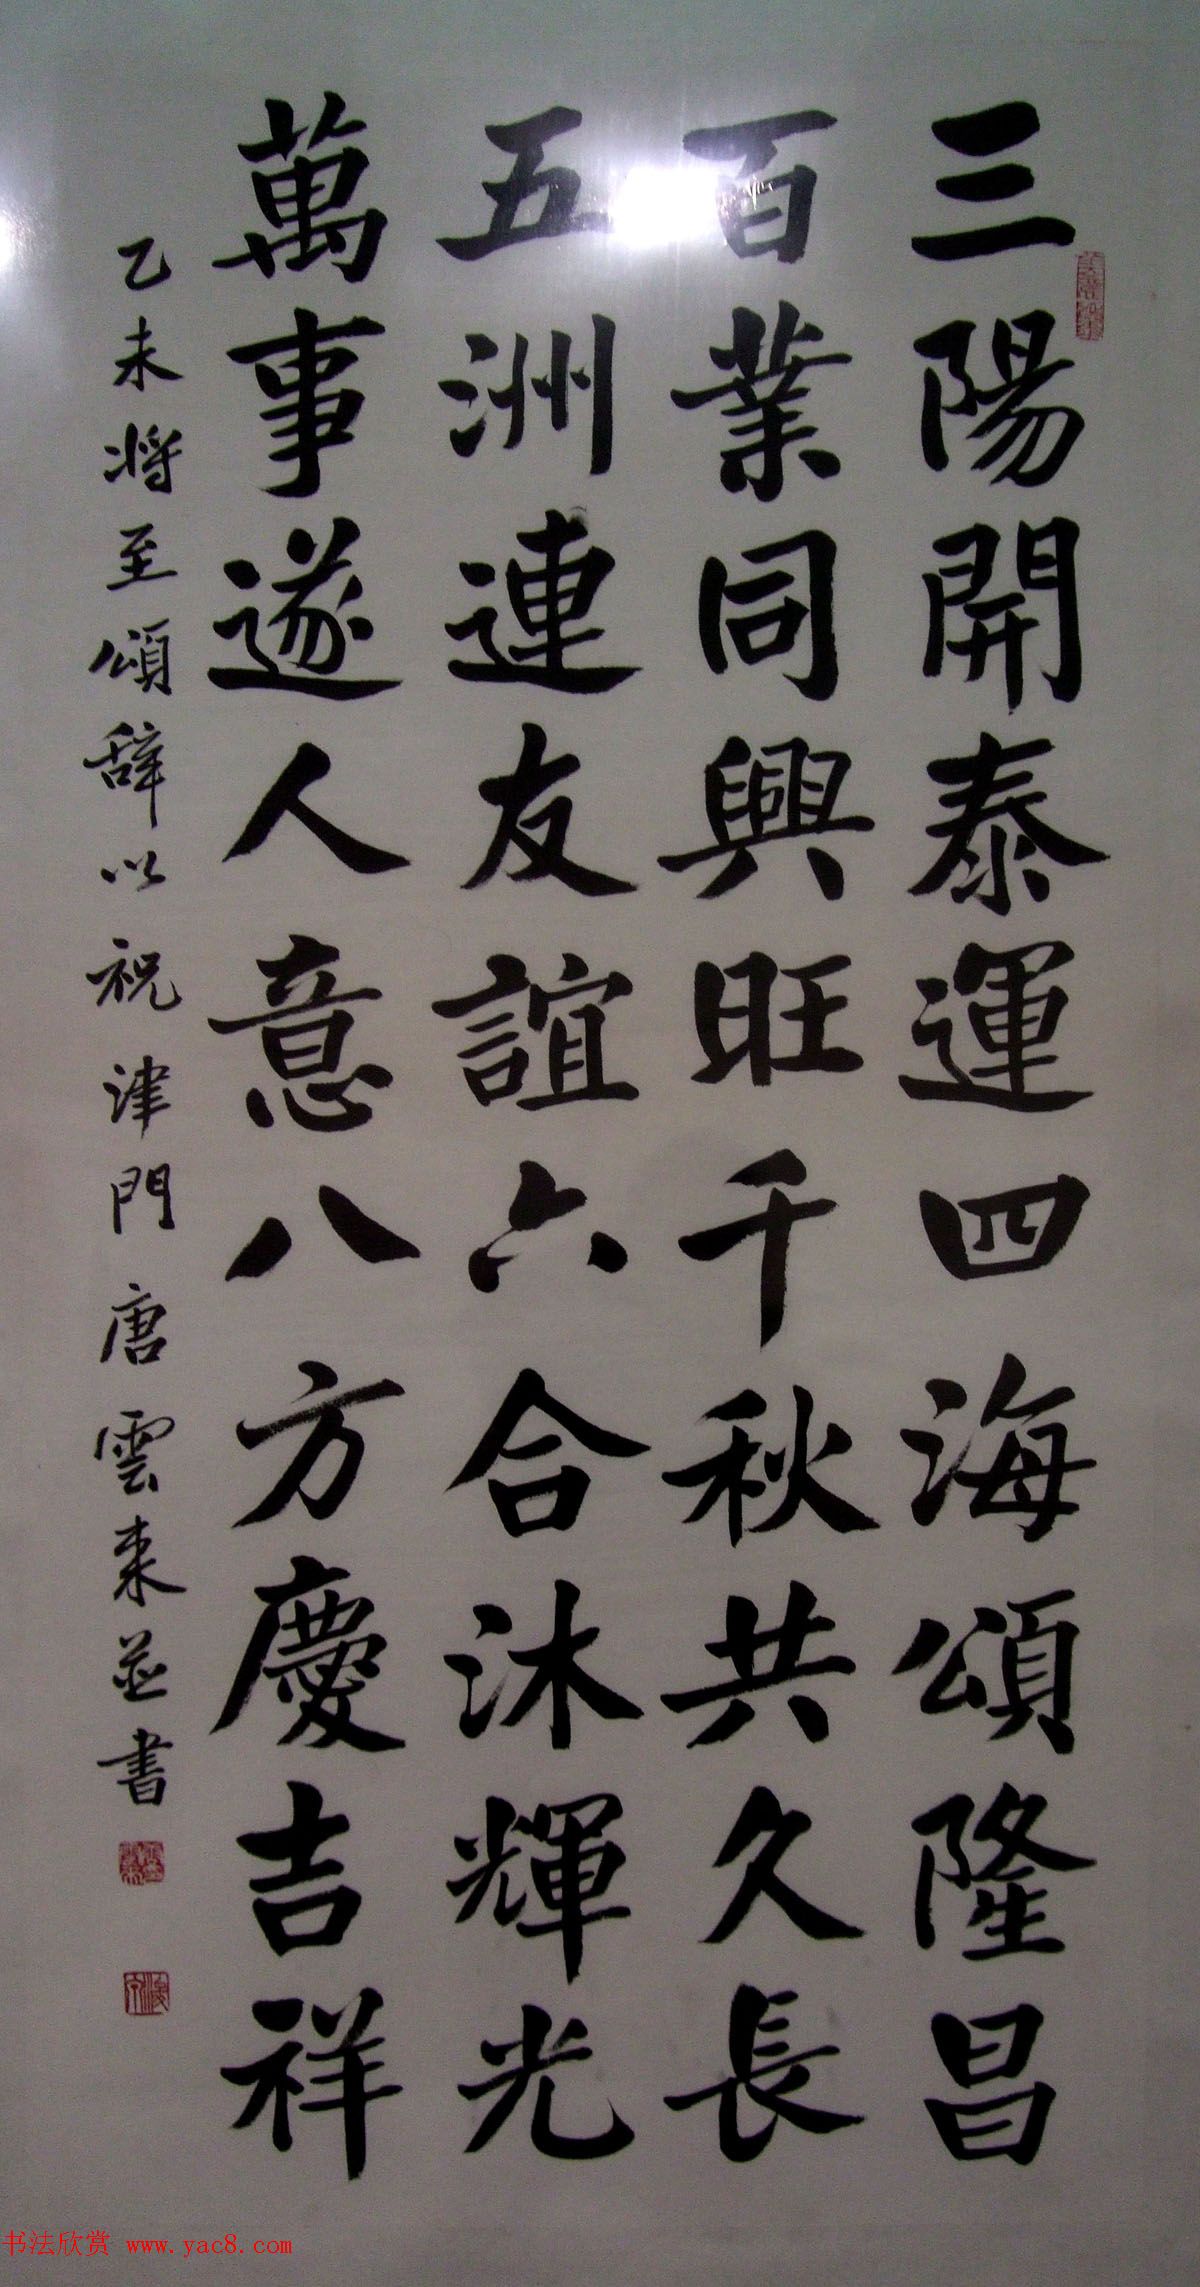 三陽開泰運四海頌隆昌
百業同興旺千秋共久長
五洲連友誼六合沐輝光
萬事遂人意八方慶吉祥
乙未將至頌辭以祝津門唐雲來並書
书法欣赏 www.yac8.com